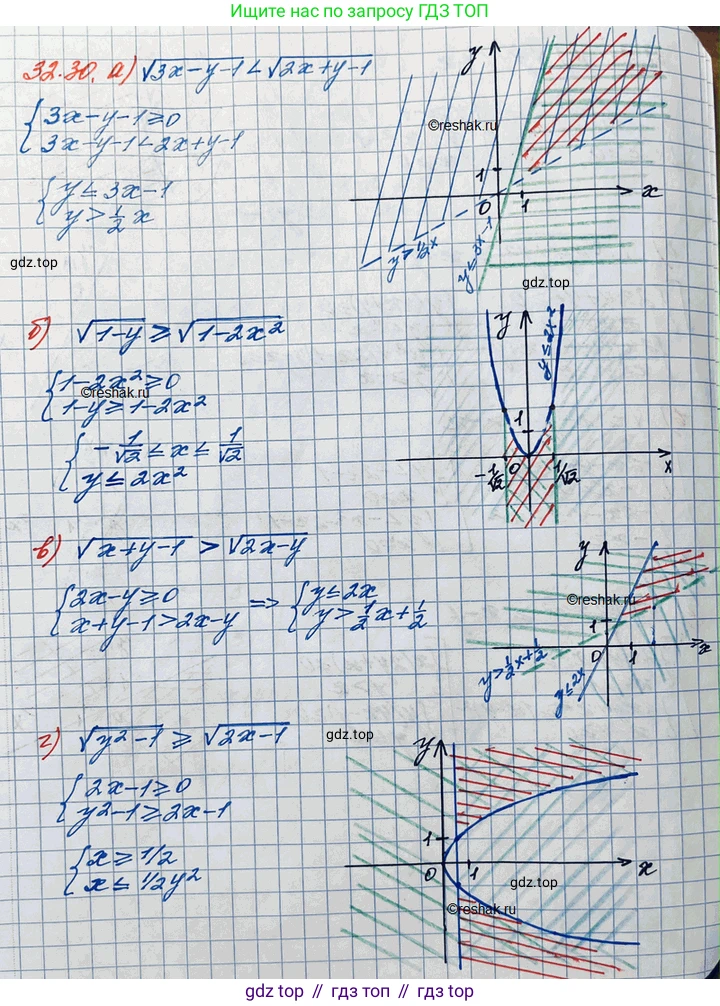 Ищите нас по запросу ГДЗ ТОП
32.30. а) √(3x-y-1) < √(2x+y-1)
{3x-y-1≥0
3x-y-1<2x+y-1
{y≤3x-1
y>1/2x
y
©reshak.ru
1
0
1
x
y>1/2x
y≤3x-1
gdz.top
gdz.top
б) √(1-y) ≥ √(1-2x²)
{1-2x²≥0
©reshak.ru
1-y≥1-2x²
{-1/√2≤x≤1/√2
y≤2x²
y
1
-1/√2
0
1/√2
x
в) √(x+y-1) > √(2x-y)
{2x-y≥0
x+y-1>2x-y
=> {y≤2x
y>1/2x+1/2
y
©reshak.ru
1
0
1
x
y>1/2x+1/2
y≤2x
г) √(y²-1) ≥ √(2x-1)
gdz.top
{2x-1≥0
y²-1≥2x-1
{x≥1/2
x≤1/2y²
y
1
0
1
x
gdz.top
©reshak.ru
gdz.top // gdz.top // gdz.top